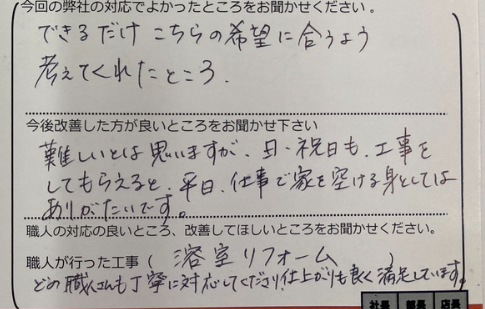 今回の弊社の対応でよかったところをお聞かせください。
できるだけ こちらの希望に合うよう
考えてくれたところ.
今後改善した方が良いところをお聞かせ下さい
難しいとは思いますが、日・祝日も、工事を
してもらえると、平日、仕事で家を空ける身としては
ありがたいです。
職人の対応の良いところ、改善してほしいところをお聞かせください。
職人が行った工事( 浴室リフォーム )
どの職人さんも丁寧に対応してくださり、仕上がりも良く満足しています。
社長 部長 店長